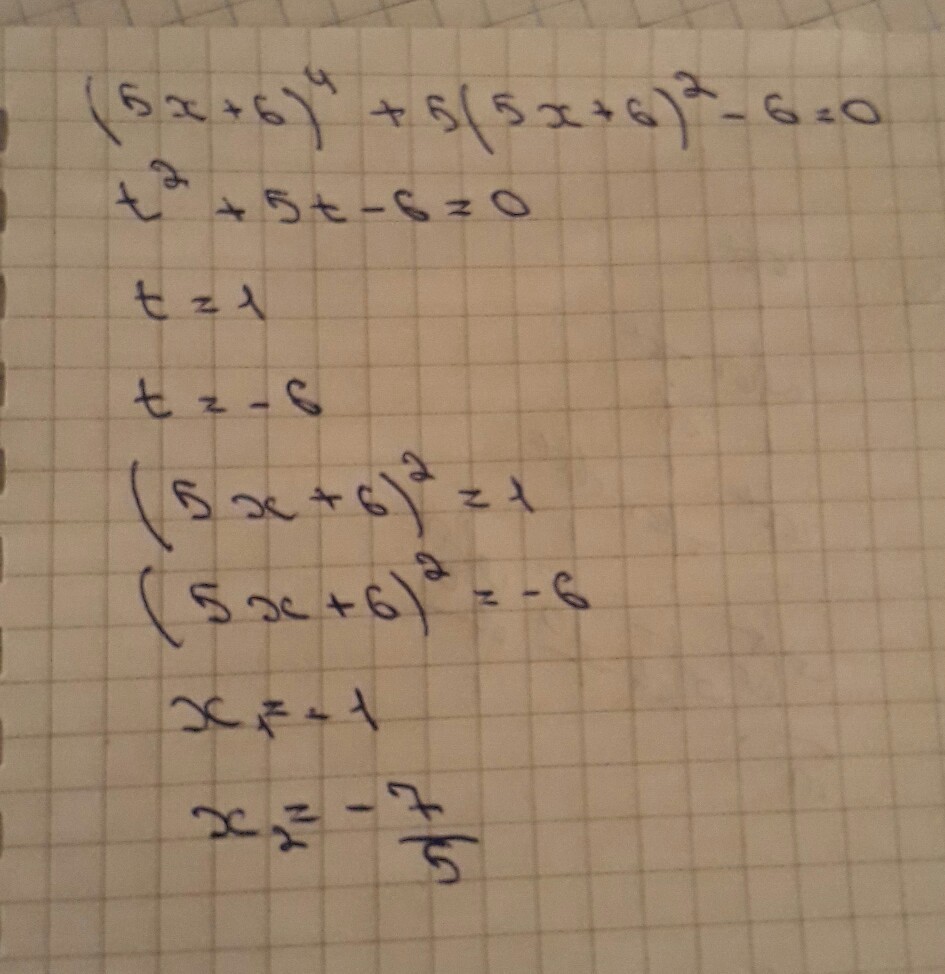 (5x+6)⁴ + 5(5x+6)² - 6 = 0
t² + 5t - 6 = 0
t = 1
t = - 6
(5x+6)² = 1
(5x+6)² = - 6
x₁ = - 1
x₂ = - 7/5